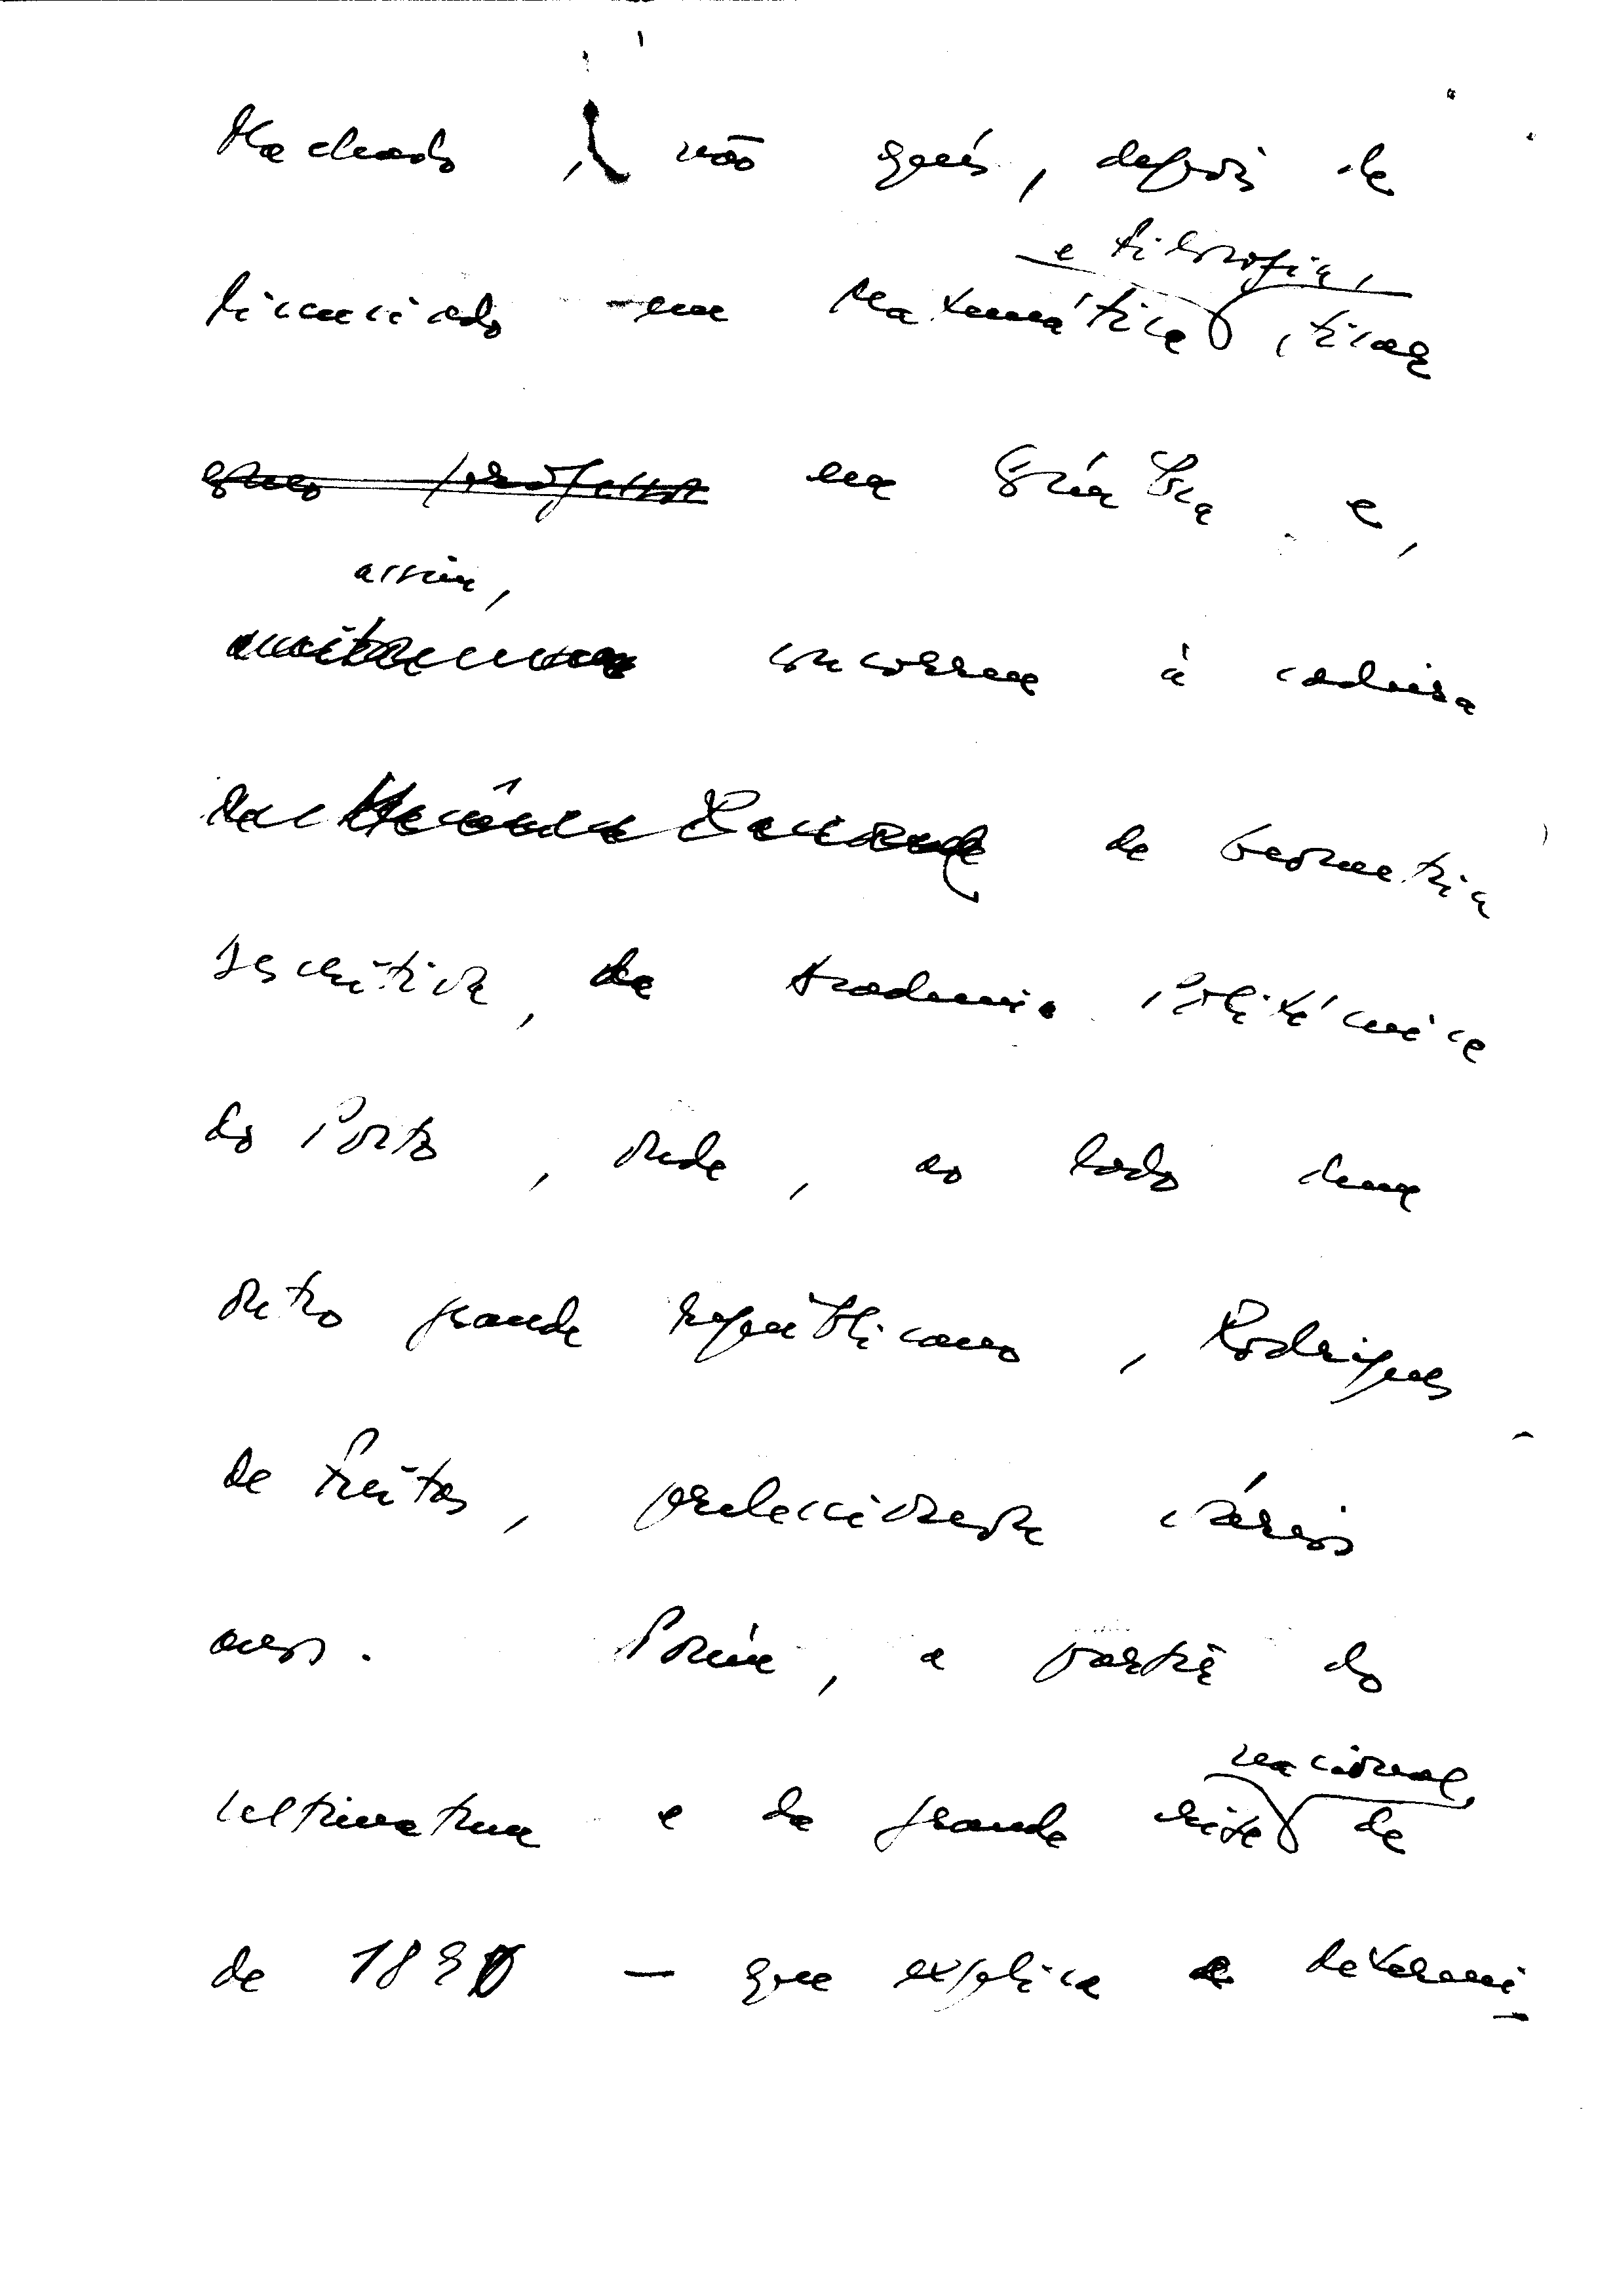 Machado, não quis, depois de
e filosofia,
licenciado em Matemática, ficar
como professor em Coimbra e,
assim,
concorreu à cadeira
de Geometria
Descritiva, da Academia Politécnica
do Porto, onde, ao lado dum
outro grande republicano, Rodrigues
de Freitas, preleccionou vários
anos. Porém, a partir do
nacional,
ultimatum e da grande crise de
de 1890 — que explica a determi